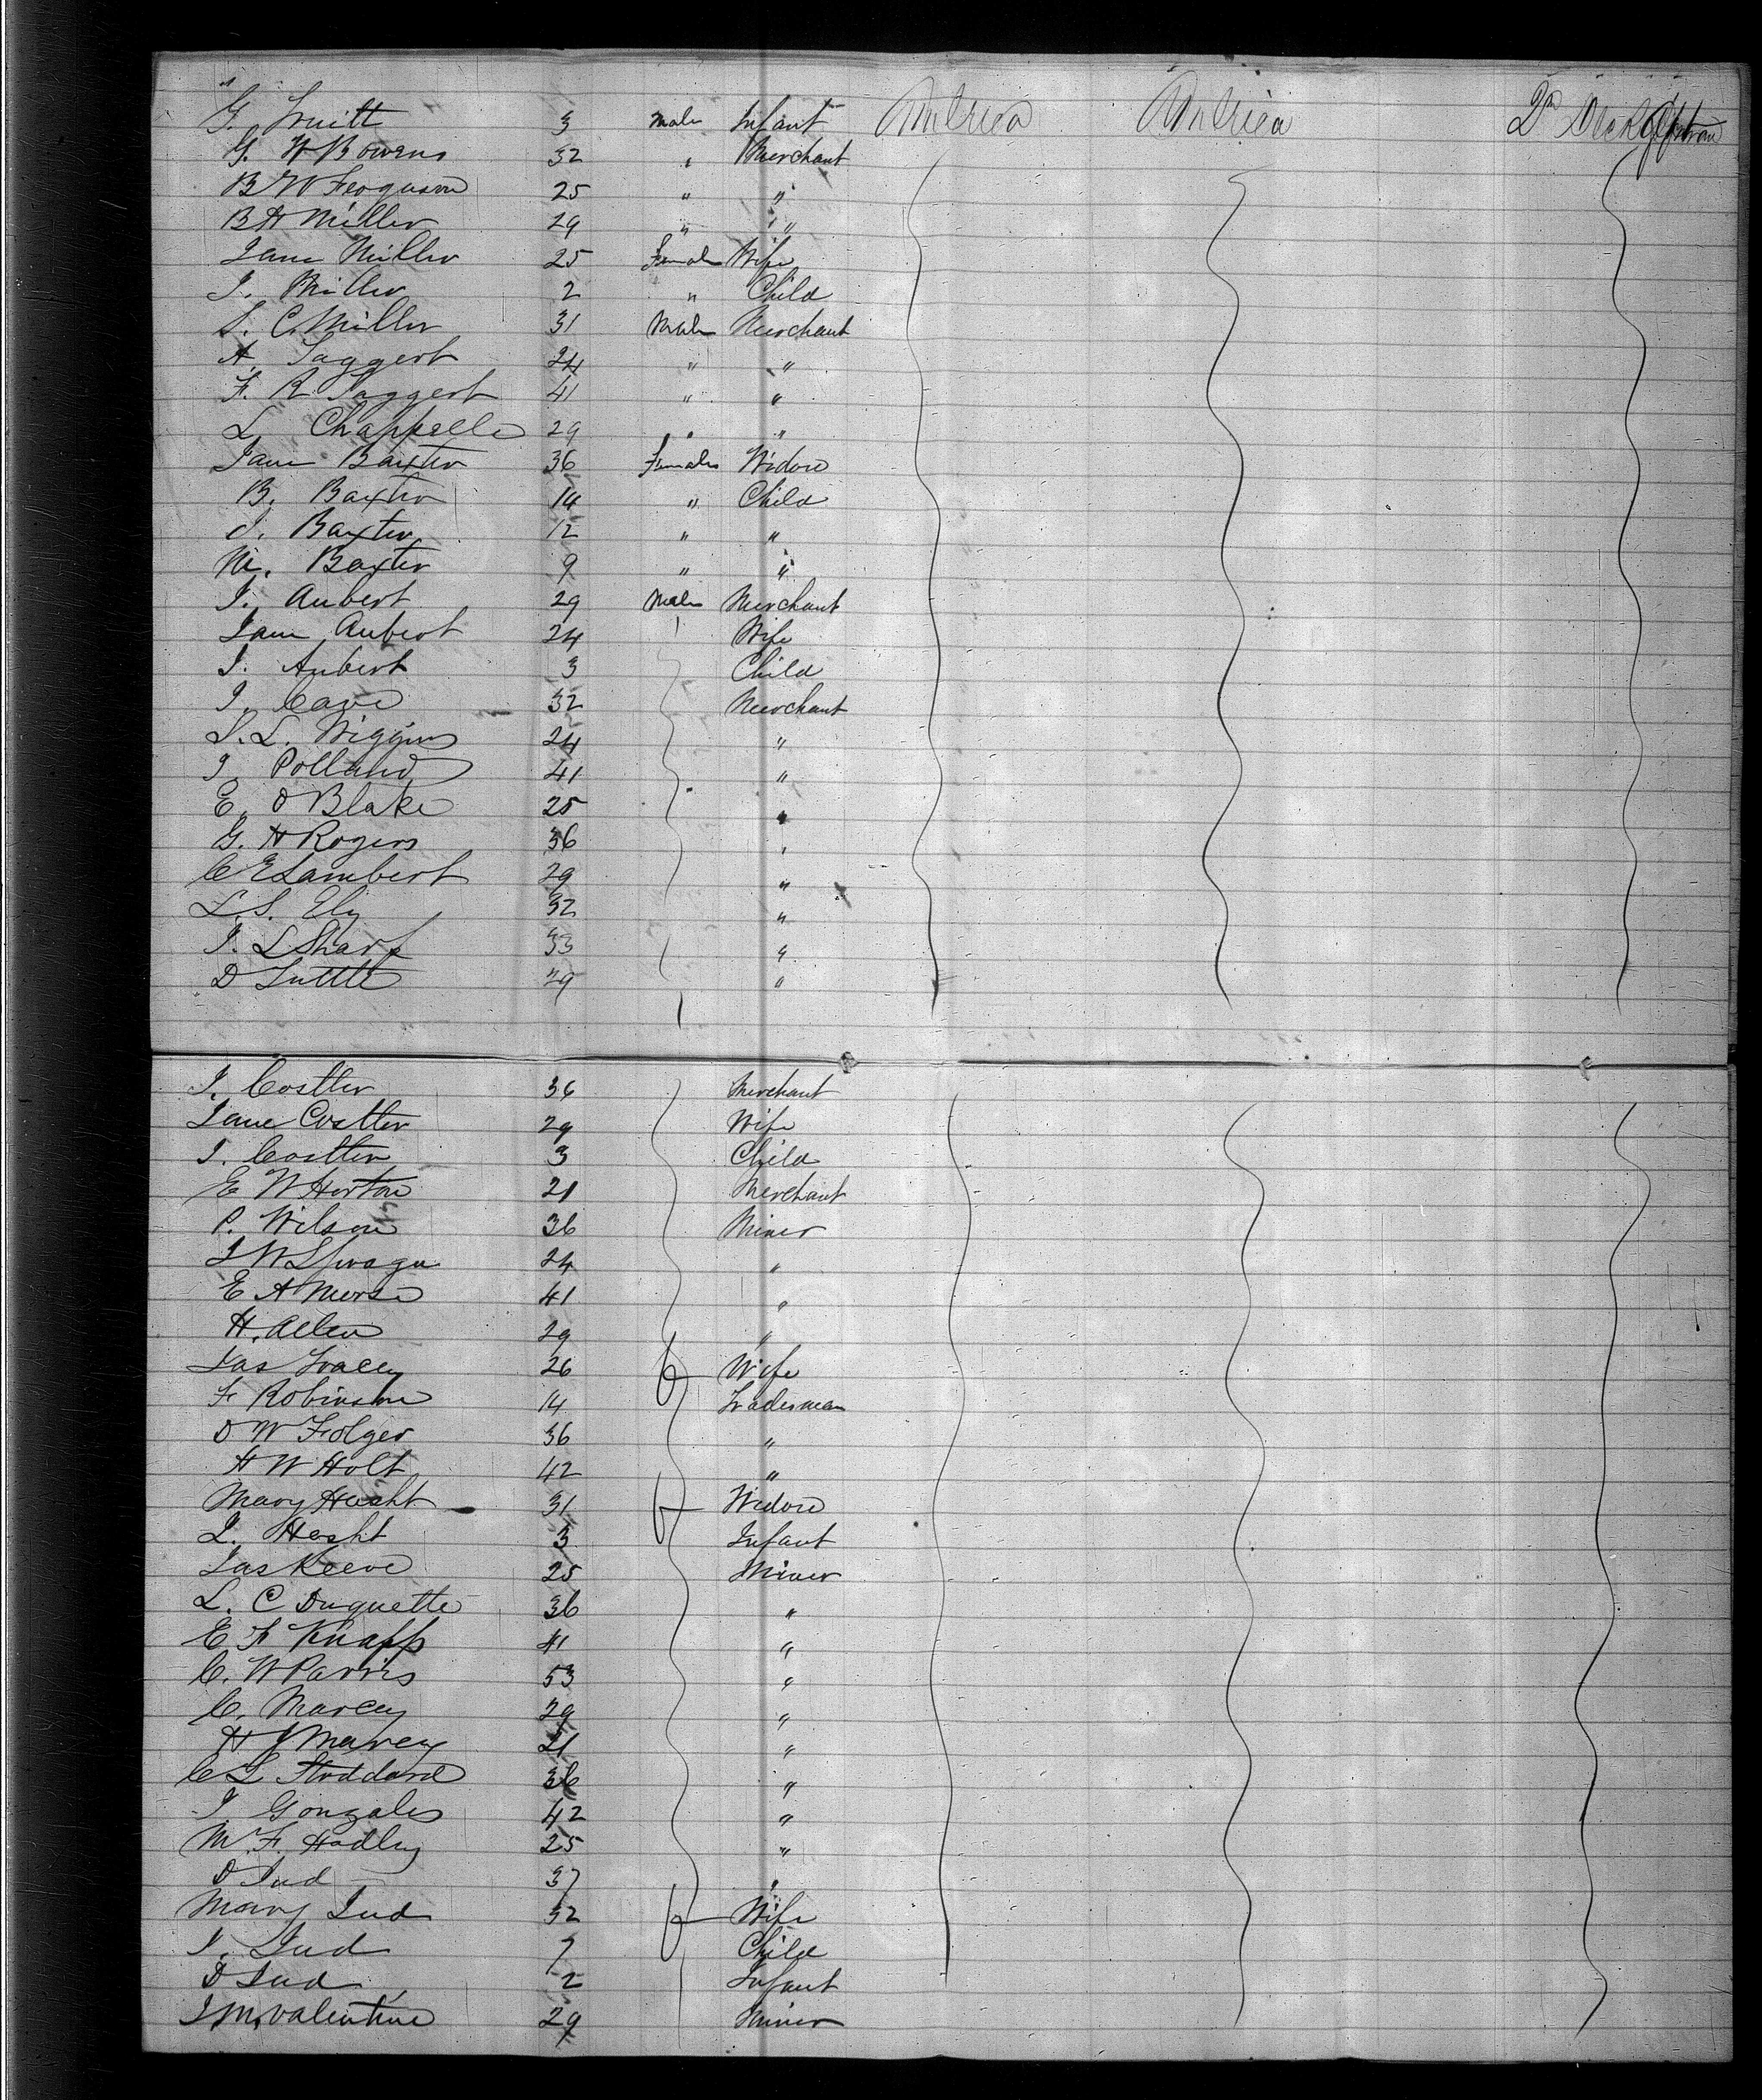 G. Truitt 3 Male Infant America America 2d
G. W Bowens 32 " Merchant
B W Ferguson 25 " "
B H Miller 29 " "
Jane Miller 25 Female Wife
J. Miller 2 " Child
S. C. Miller 31 Male Merchant
A. Taggert 24 " "
F. R. Taggert 41 " "
L Chappelle 29 " "
Jane Baxter 36 Females Widow
B. Baxter 14 " Child
J. Baxter 12 " "
M. Baxter 9 " "
J. Aubert 29 Male Merchant
Jane Aubert 24 Wife
J. Aubert 3 Child
J. Cave 32 Merchant
S. L. Wiggins 24 "
J. Polland 41 "
E. O Blake 25 "
G. H Rogers 36 "
C E Lambert 29 "
L. S. Ely 32 "
J. L Sharp 33 "
D Tuttle 29 "
J. Costler 36 Merchant
Jane Costler 29 Wife
J. Costler 3 Child
E W Horton 21 Merchant
P. Wilson 36 Miner
J W Sprague 24 "
E A Morse 41 "
H. Allen 29 "
Jas Tracey 26 f Wife
F Robinson 14 Tradesman
D W Folger 36 "
H W Holt 42 "
Mary Hecht 31 f Widow
L. Hecht 3 Infant
Jas Reeve 25 Miner
L. C Duquette 36 "
E F Knapp 41 "
C. W Parris 53 "
C. Marcey 29 "
H J Marcey 21 "
C L Stoddard 36 "
J Gonzales 42 "
M. F. Hadley 25 "
D Jud 37 "
Mary Jud 32 f Wife
J. Jud 7 Child
D Jud 2 Infant
J. M. Valentine 29 Miner